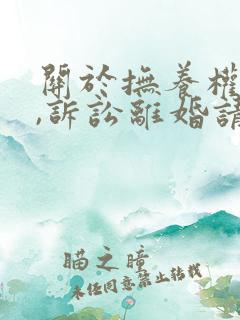 關於撫養權
,訴訟離婚請
瞄之瞳
未經同意禁止轉載